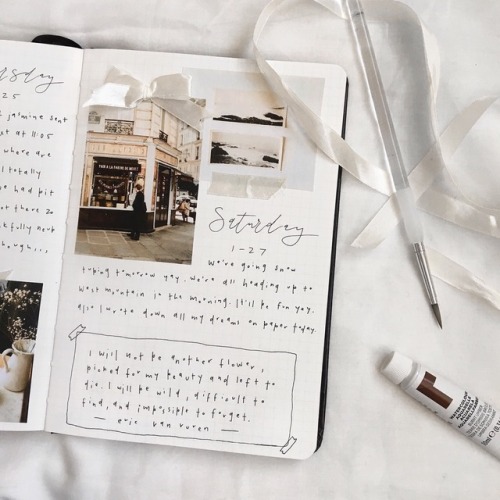 sday
25
jasmine sent
st at 11:05
where are
totally
we had pit
Saturday
1-27
We're going snow
tubing tomorrow yay. We're all heading up to
West mountain in the morning. It'll be fun yay.
also I wrote down all my dreams on paper today.
I will not be another flower,
picked for my beauty and left to
die. I will be wild, difficult to
find, and impossible to forget.
— erin van vuren —